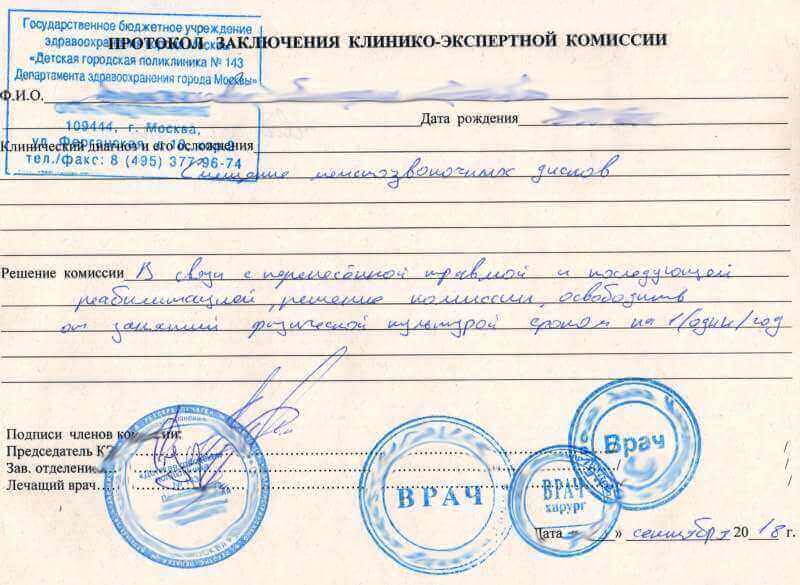 Государственное бюджетное учреждение
здравоохранения города Москвы
«Детская городская поликлиника № 143
Департамента здравоохранения города Москвы»
ПРОТОКОЛ ЗАКЛЮЧЕНИЯ КЛИНИКО-ЭКСПЕРТНОЙ КОМИССИИ
Ф.И.О.
Дата рождения
109444, г. Москва,
ул. Ферганская,
тел./факс: 8 (495) 377-96-74
Клинический диагноз и его осложнения
Смещение межпозвоночных дисков
Решение комиссии В связи с перенесённой травмой и последующей
реабилитацией, решение комиссии, освободить
от занятий физической культурой сроком на 1/один/год
Подписи членов комиссии:
Председатель
Зав. отделением
Лечащий врач
ВРАЧ
ВРАЧ
хирург
Врач
Дата « » сентября 2018 г.